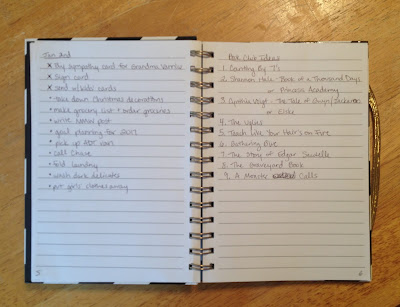 Jan 2nd
x Buy sympathy card for Grandma
x Sign card
x send w/ kids' cards
• take down Christmas decorations
• make grocery list + order groceries
• write post
• goal planning for 2015
• pick up
• call
• fold laundry
• wash dark delicates
• put girls clothes away
5
Book Club Ideas
1. Counting By 7's
2. Shannon Hale - Book of a Thousand Days
or Princess Academy
3. Cynthia Voigt - The Tale of
or Elske
4. The Uglies
5. Teach Like Your Hair's on Fire
6. Gathering Blue
7. The Story of Edgar Sawtelle
8. The Graveyard Book
9. A Monster Calls
6